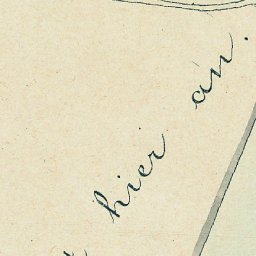 hier an.